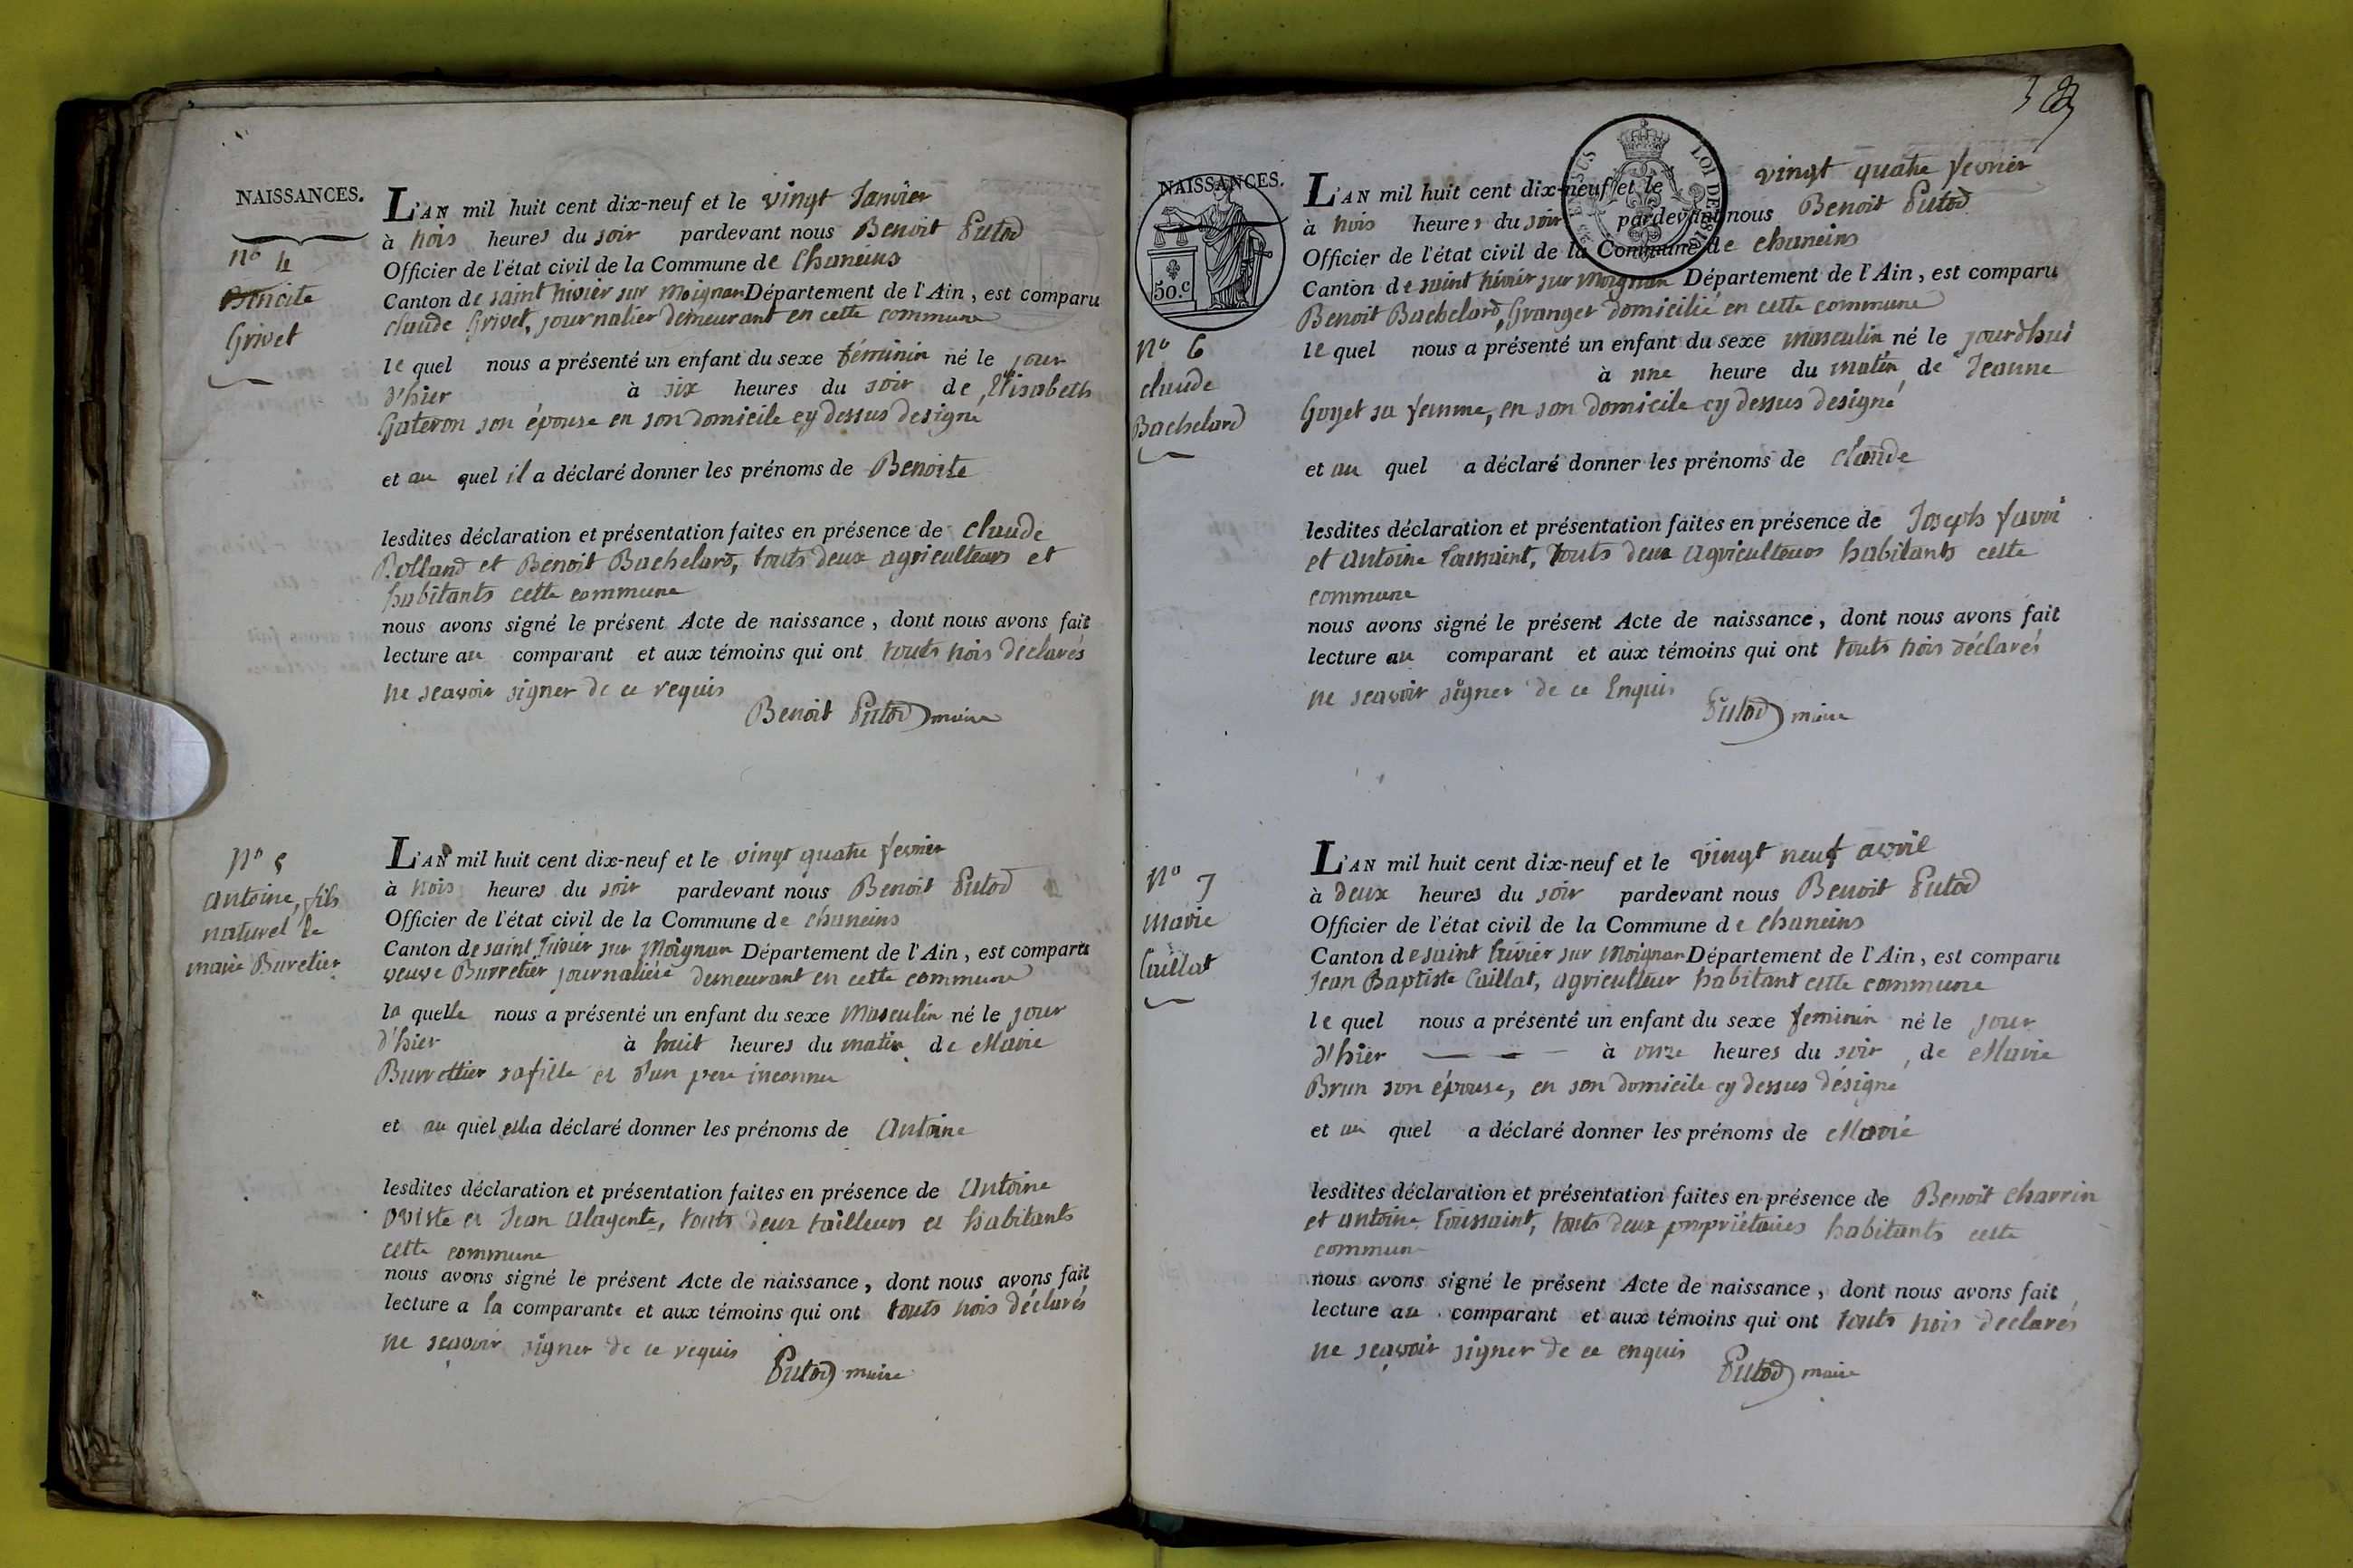 NAISSANCES.
nº 4
Benoite
Grivet
L'AN mil huit cent dix-neuf et le vingt Janvier
à trois heures du soir pardevant nous Benoit Putod
Officier de l'état civil de la Commune de chaneins
Canton de saint trivier sur Moignan Département de l'Ain, est comparu
claude Grivet, journalier demeurant en cette commune
le quel nous a présenté un enfant du sexe féminin né le jour
d'hier à six heures du soir de Elisabeth
Gateron son épouse en son domicile cy dessus designé
et au quel il a déclaré donner les prénoms de Benoite
lesdites déclaration et présentation faites en présence de claude
Rolland et Benoit Bachelard, touts deux agriculteurs et
habitants cette commune
nous avons signé le présent Acte de naissance, dont nous avons fait
lecture au comparant et aux témoins qui ont touts trois déclarés
ne scavoir signer de ce requis
Benoit Putod maire
nº 5
antoine, fils
naturel de
marie Buretier
L'AN mil huit cent dix-neuf et le vingt quatre fevrier
à trois heures du soir pardevant nous Benoit Putod
Officier de l'état civil de la Commune de chaneins
Canton de saint Trivier sur Moignan Département de l'Ain, est comparu
veuve Burretier journalière demeurant en cette commune
la quelle nous a présenté un enfant du sexe masculin né le jour
d'hier à huit heures du matin de Marie
Burrettier sa fille et d'un pere inconnu
et au quel elle a déclaré donner les prénoms de Antoine
lesdites déclaration et présentation faites en présence de Antoine
oviste et Jean alagente, touts deux tailleurs et habitants
cette commune
nous avons signé le présent Acte de naissance, dont nous avons fait
lecture a la comparante et aux témoins qui ont touts trois déclarés
ne scavoir signer de ce requis
Putod maire
NAISSANCES.
50.c
nº 6
claude
Bachelard
L'AN mil huit cent dix-neuf et le vingt quatre fevrier
à trois heures du soir pardevant nous Benoit Putod
Officier de l'état civil de la Commune de chaneins
Canton de saint trivier sur Moignan Département de l'Ain, est comparu
Benoit Bachelard, Granger domicilié en cette commune
le quel nous a présenté un enfant du sexe masculin né le jourd'hui
à une heure du matin de Jeanne
Goyet sa femme, en son domicile cy dessus designé
et au quel a déclaré donner les prénoms de claude
lesdites déclaration et présentation faites en présence de Joseph
et antoine toussaint, touts deux agriculteurs habitants cette
commune
nous avons signé le présent Acte de naissance, dont nous avons fait
lecture au comparant et aux témoins qui ont touts trois déclarés
ne scavoir signer de ce Enquis
Putod maire
nº 7
marie
Caillat
L'AN mil huit cent dix-neuf et le vingt neuf avril
à deux heures du soir pardevant nous Benoit Putod
Officier de l'état civil de la Commune de chaneins
Canton de saint trivier sur Moignan Département de l'Ain, est comparu
Jean Baptiste Caillat, agriculteur habitant cette commune
le quel nous a présenté un enfant du sexe feminin né le jour
d'hier à onze heures du soir, de Marie
Brun son épouse, en son domicile cy dessus désigné
et au quel a déclaré donner les prénoms de Marie
lesdites déclaration et présentation faites en présence de Benoit charrin
et antoine toussaint, touts deux propriétaires habitants cette
commune
nous avons signé le présent Acte de naissance, dont nous avons fait
lecture au comparant et aux témoins qui ont touts trois declarés
ne scavoir signer de ce enquis
Putod maire